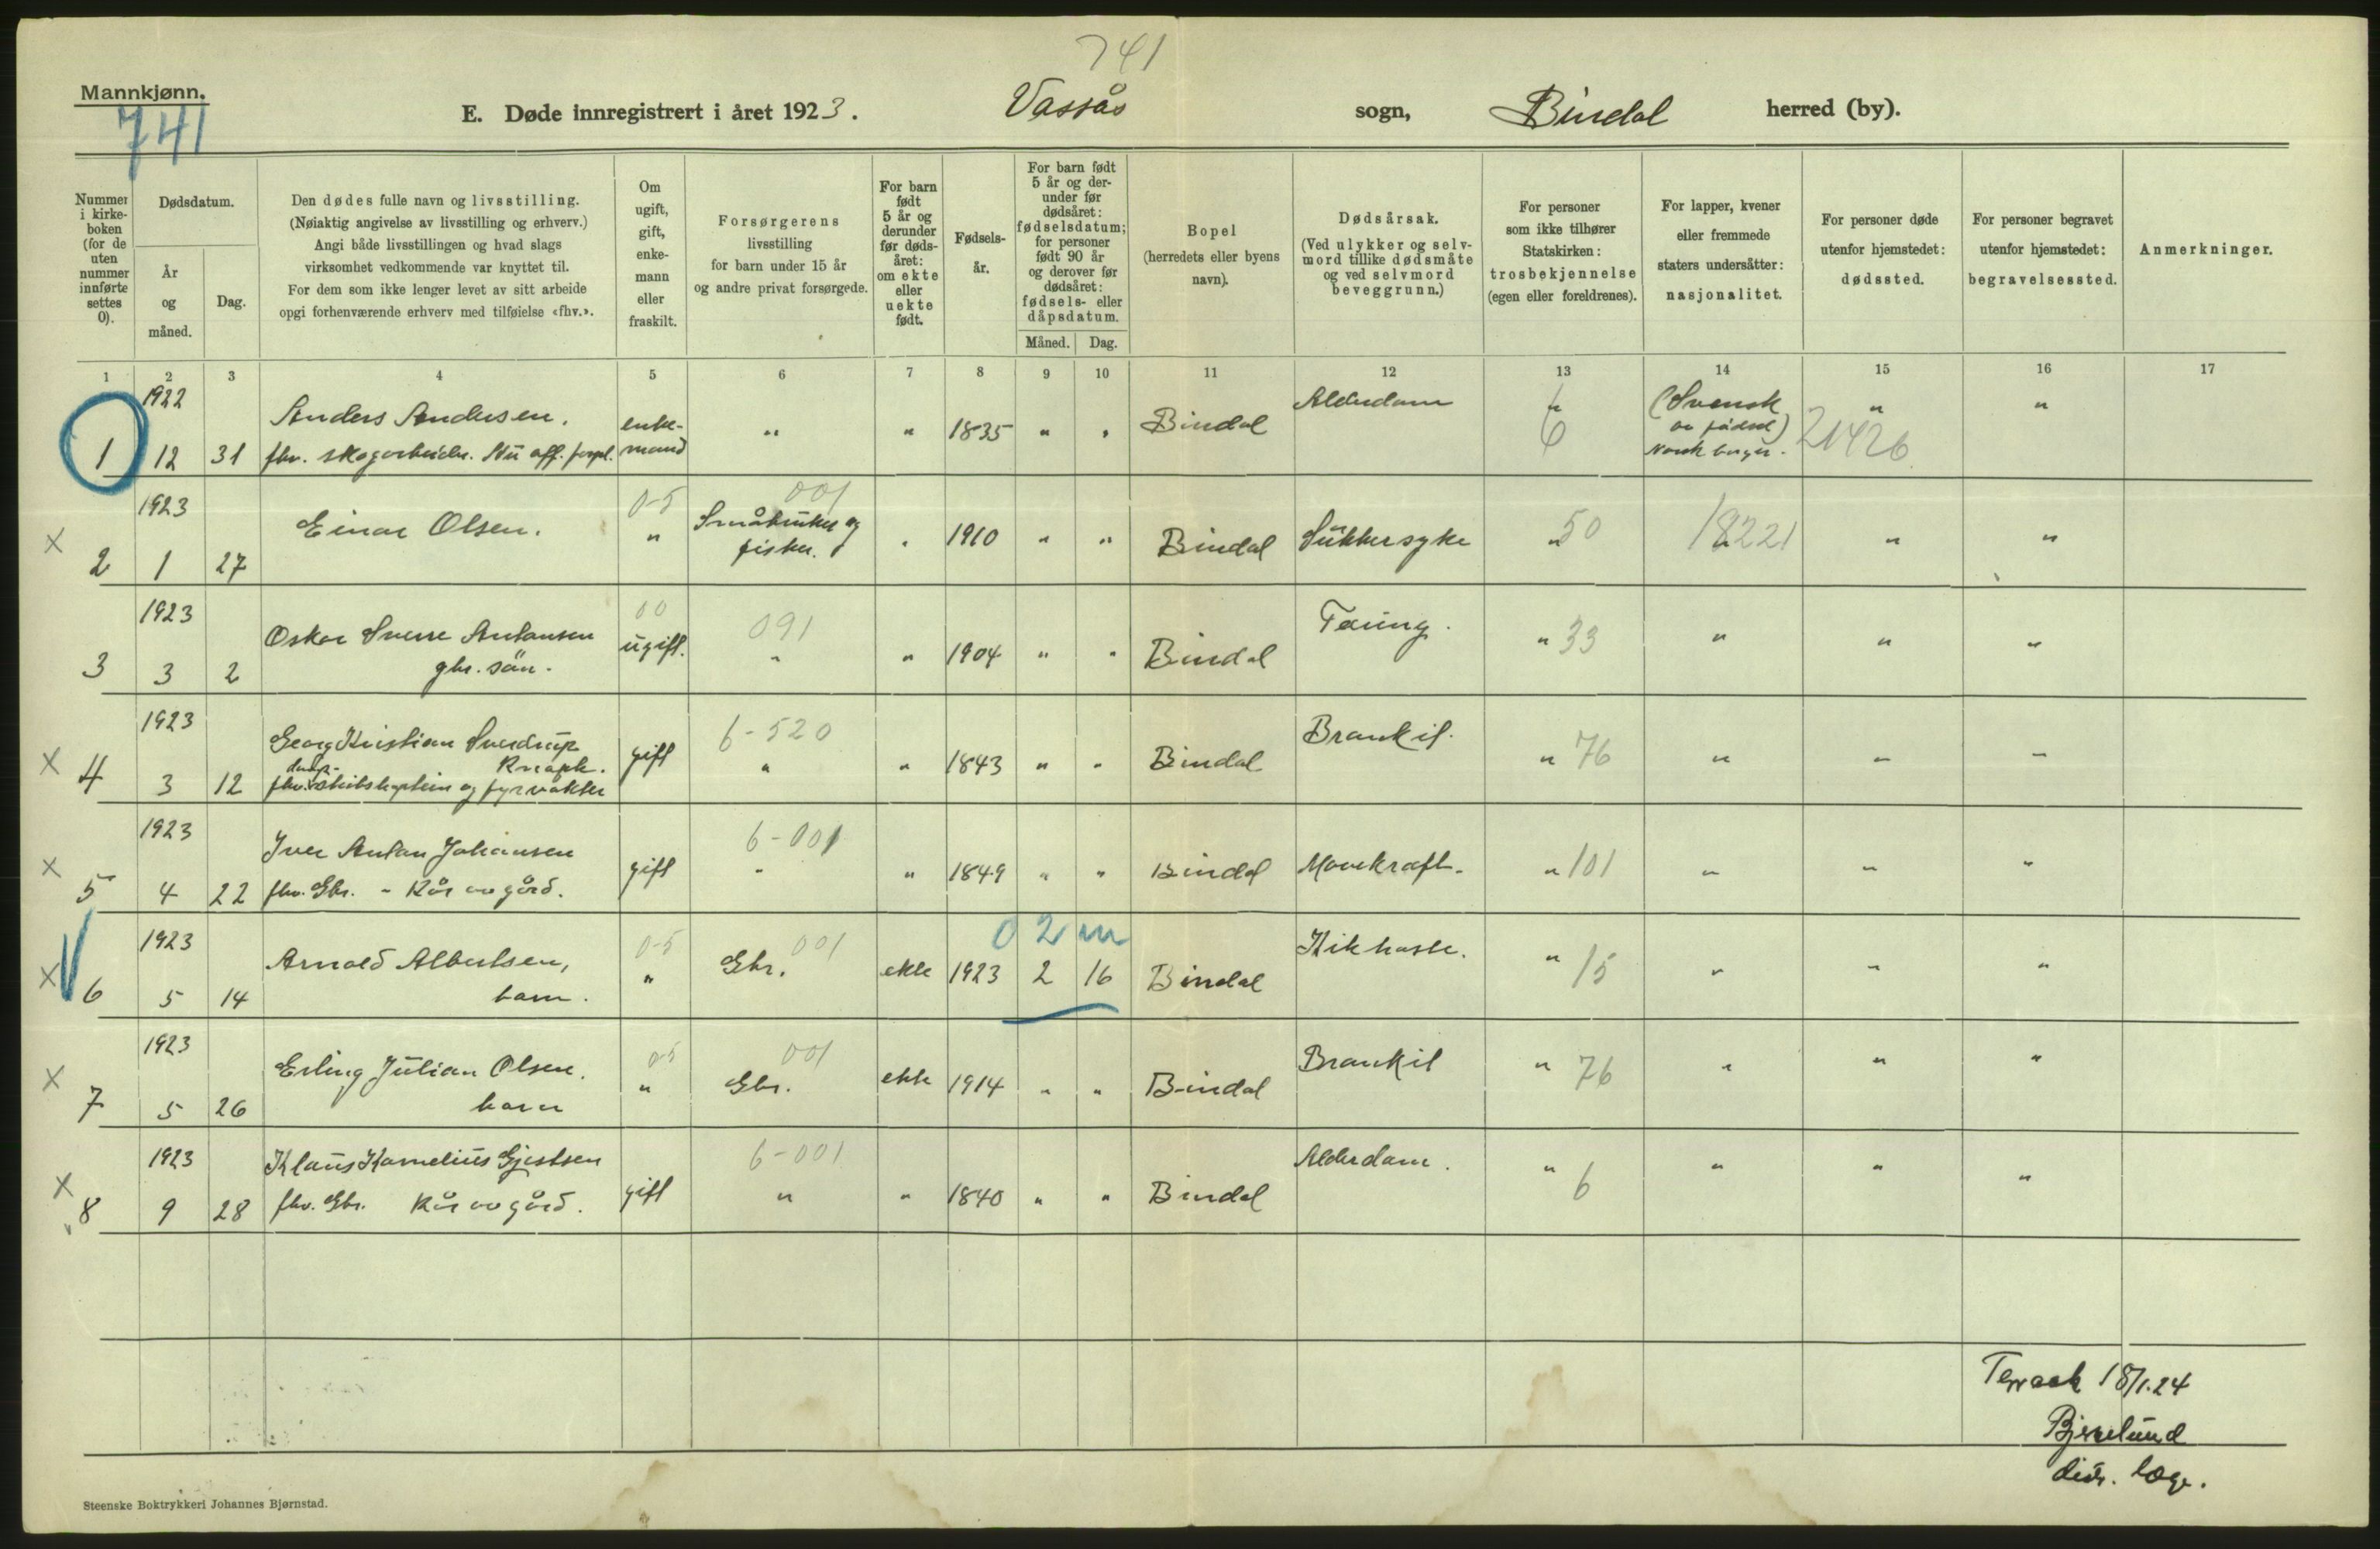 741
Mannkjønn.
741
E. Døde innregistrert i året 1923. Vassås sogn, Bindal herred (by).
Nummer i kirke-boken (for de uten nummer innførte settes 0).
Dødsdatum.
År og måned.
Dag.
Den dødes fulle navn og livsstilling.
(Nøiaktig angivelse av livsstilling og erhverv.)
Angi både livsstillingen og hvad slags
virksomhet vedkommende var knyttet til.
For dem som ikke lenger levet av sitt arbeide
opgi forhenværende erhverv med tilføielse «fhv.».
Om ugift, gift, enke-mann eller fraskilt.
Forsørgerens
livsstilling
for barn under 15 år
og andre privat forsørgede.
For barn født 5 år og derunder før døds-året: om ekte eller uekte født.
Fødsels-år.
For barn født 5 år og der-under før dødsåret: fødselsdatum; for personer født 90 år og derover før dødsåret: fødsels- eller dåpsdatum.
Måned. Dag.
Bopel
(herredets eller byens navn).
Dødsårsak.
(Ved ulykker og selv-mord tillike dødsmåte og ved selvmord beveggrunn.)
For personer som ikke tilhører Statskirken: trosbekjennelse (egen eller foreldrenes).
For lapper, kvener eller fremmede staters undersåtter: nasjonalitet.
For personer døde utenfor hjemstedet: dødssted.
For personer begravet utenfor hjemstedet: begravelsessted.
Anmerkninger.
1 2 3 4 5 6 7 8 9 10 11 12 13 14 15 16 17
1922 Anders Andersen. enke- " " 1835 " " Bindal Alderdom " (Svensk " "
av fødsel)
1 12 31 fhv. skogarbeider. mand 6 Norsk borger. 21426
1923 0-5 001
x 2 1 27 Einar Olsen. " Småbruker og fisker. " 1910 " " Bindal Sukkersyke " 50 18221 " "
1923 00 091
3 3 2 Oskar Sverre Antonsen ugift. " " 1904 " " Bindal Tæring. " 33 " " "
gbr. søn.
1923 6-520
x 4 3 12 Georg Kristian Sverdrup Knoph. gift " " 1843 " " Bindal Bronkit. " 76 " " "
fhv. damp-skibskaptein og fyrvokter
1923 6-001
x 5 4 22 Iver Antan Johansen gift " " 1849 " " Bindal Mavekræft. " 101 " " "
fhv. Gbr. - Kår av gård.
1923 0-5 001 0 2 m
x 6 5 14 Arnold Albertsen, " Gbr. ekte 1923 2 16 Bindal Kikhoste. " 15 " " "
barn.
1923 0-5 001
x 7 5 26 Erling Julian Olsen. " Gbr. ekte 1914 " " Bindal Bronkit " 76 " " "
barn
1923 6-001
x 8 9 28 Klaus Kornelius Gjertsen gift " " 1840 " " Bindal Alderdom. " 6 " " "
fhv. Gbr. Kår av gård.
Terraak 18/1.24
Bjerelund
distr. læge.
Steenske Boktrykkeri Johannes Bjørnstad.